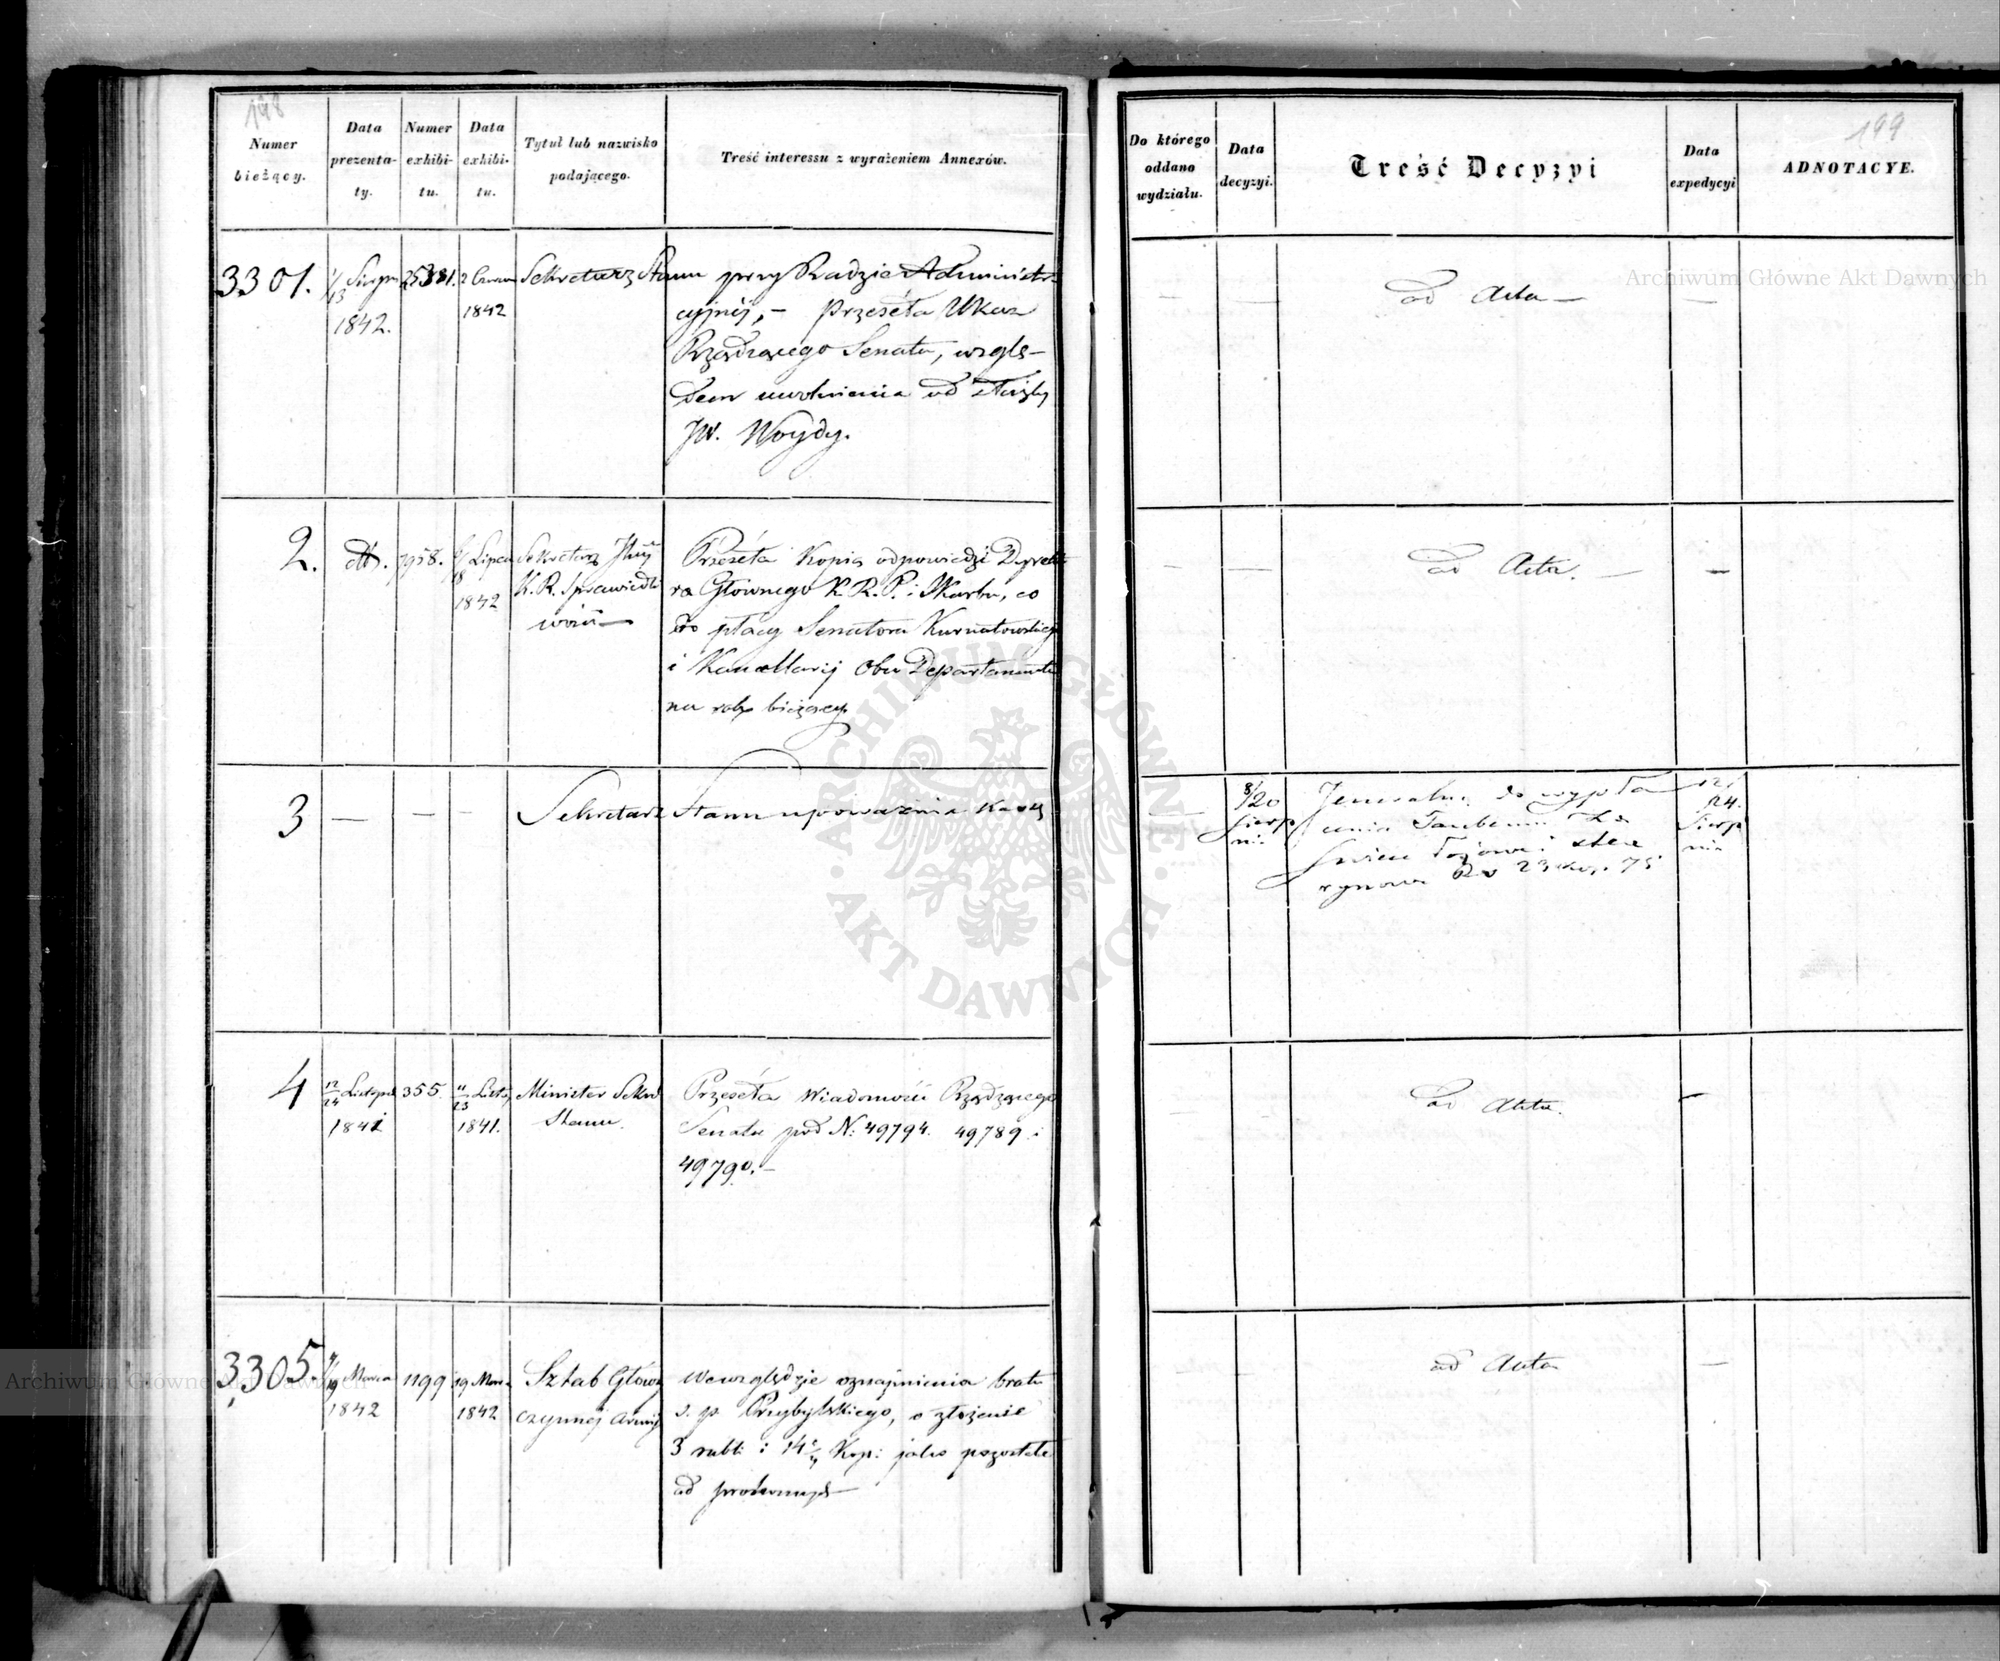 198
Numer bieżący.
Data prezentaty.
Numer exhibitu.
Data exhibitu.
Tytuł lub nazwisko podającego.
Treść interessu z wyrażeniem Annexów.
3301.
1/13 Sierpn 1842.
25381.
2 Czerwca 1842
Sekretarz Stanu przy Radzie Administra-
cyjnéj, – Przeséła Ukaz
Rządzącego Senatu, wzglę-
dem uwolnienia od służby
JW. Woydy.
2.
dto.
7958.
6/18 Lipca 1842
Sekretarz Jlny
K. R. Sprawiedli
wości
Przeséła Kopią odpowiedzi Dyrekto
ra Głownego K. R. P. i Skarbu, co
do płacy Senatora Kurnatowskiego
i Kancellarij Obu Departamentów
na rok bieżący
3
Sekretarz Stanu upoważnia Kassę
4
12/24 Listopad 1841
355.
11/23 Listo, 1841.
Minister Sekre
Stanu.
Przeséła Wiadomości Rządzącego
Senatu pod N: 49794. 49789. i
49790. –
3305.
7/19 Marca 1842
1199
19 Marca 1842
Sztab Główny
czynnéj Armij
We względzie oznajmienia bratu
ś. p Przybylskiego, o złożenie
3 rubli i 14 Kop: jako pozostałe
od
199
Do którego oddano wydziału.
Data decyzyi.
Treść Decyzyi
Data expedycyi
ADNOTACYE.
ad Acta –
ad Acta. –
8/20 Sierpnia
Jeneralną do wypła
cenia za
świece łojowe i stea
rynowe Rs 23 kop. 75
12/24. Sierpnia
ad Acta.
ad Acta
Archiwum Główne Akt Dawnych
ARCHIWUM GŁÓWNE
AKT DAWNYCH
Archiwum Główne Akt Dawnych